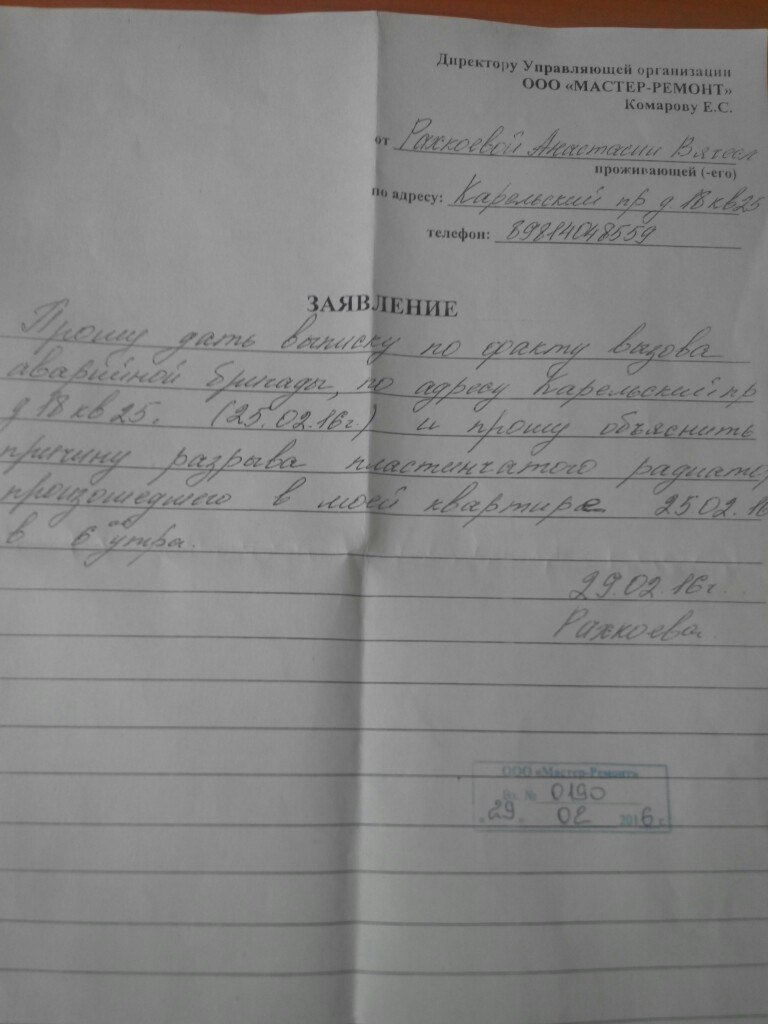 Директору Управляющей организации
ООО «МАСТЕР-РЕМОНТ»
Комарову Е.С.
от Рахкоевой Анастасии Вячесл
проживающей (-его)
по адресу: Карельский пр д 18 кв 25
телефон: 89814048559
ЗАЯВЛЕНИЕ
Прошу дать выписку по факту вызова
аварийной бригады, по адресу Карельский пр
д 18 кв 25. (25.02.16г.) и прошу объяснить
причину разрыва пластинчатого радиатор
произошедшего в моей квартире 25.02.16
в 6 00 утра.
29.02.16г.
Рахкоева
ООО «Мастер-Ремонт»
Вх. № 0190
29 02 2016 г.